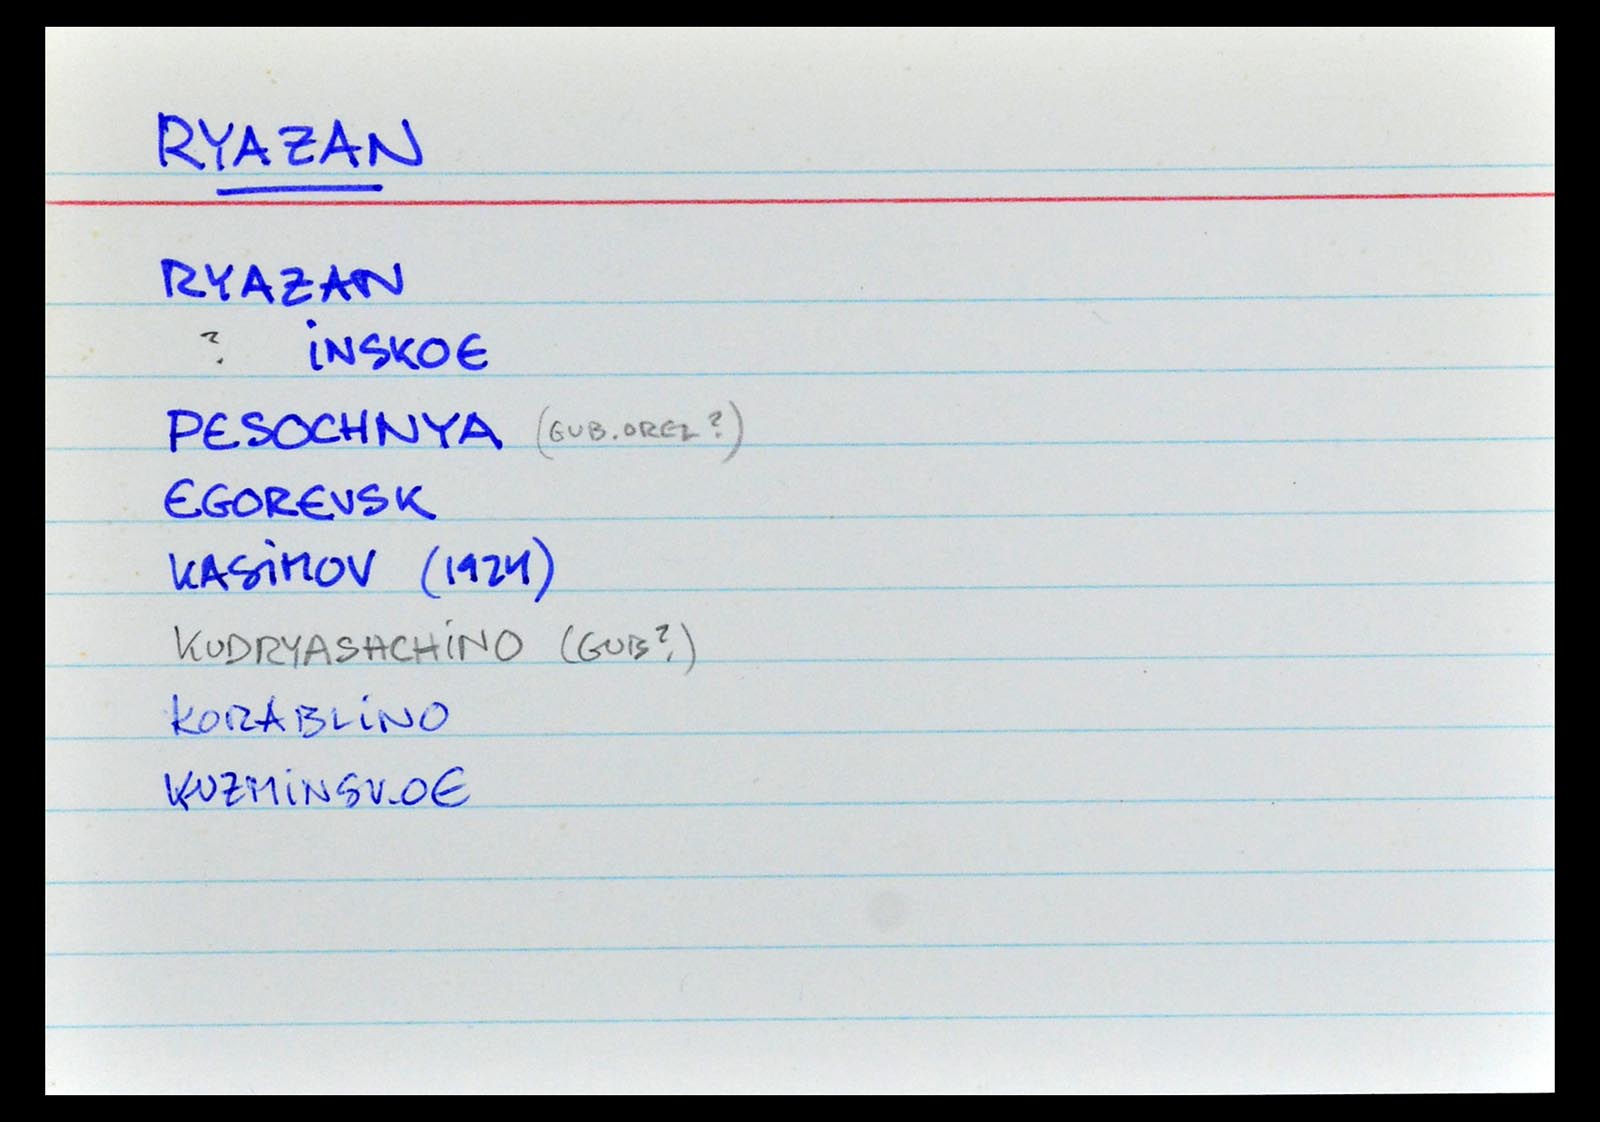 RYAZAN
RYAZAN
? INSKOE
PESOCHNYA (GUB. OREL?)
EGOREVSK
KASIMOV (1924)
KUDRYASHCHINO (GUB?)
KORABLINO
KUZMINSKOE